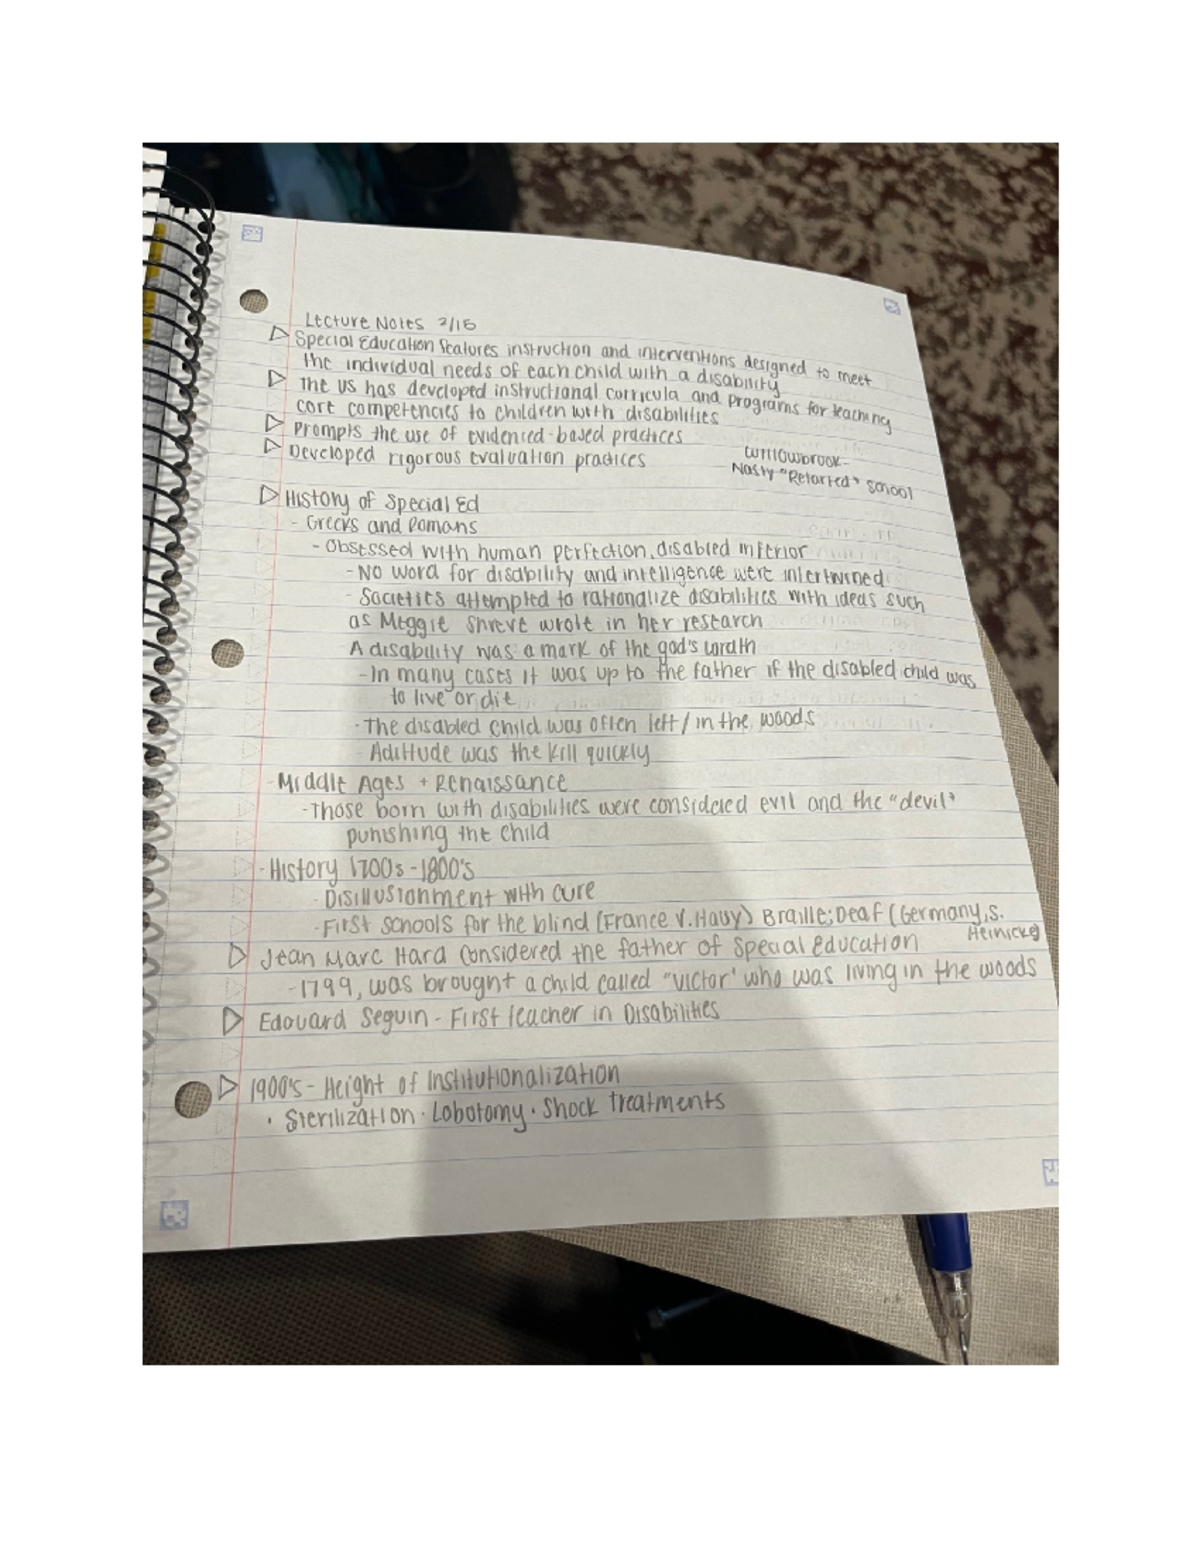 Lecture Notes 2/15
▷ Special Education features instruction and interventions designed to meet
the individual needs of each child with a disability
▷ The US has developed instructional curricula and programs for teaching
core competencies to children with disabilities
▷ Prompts the use of evidenced-based practices
▷ Developed rigorous evaluation practices
Willowbrook-
Nasty "Retarted" school
▷ History of Special Ed
- Greeks and Romans
- Obsessed with human perfection, disabled inferior
- No word for disability and intelligence were intertwined
- Societies attempted to rationalize disabilities with ideas such
as Meggie Shreve wrote in her research
A disability was a mark of the god's wrath
- In many cases it was up to the father if the disabled child was
to live or die
- The disabled child was often left/in the woods
- Adittude was the kill quickly
- Middle Ages + Renaissance
- Those born with disabilities were considered evil and the "devil"
punishing the child
- History 1700s-1800's
- Disillusionment with cure
- First schools for the blind (France V. Hauy) Braille; Deaf (Germany, S.
Heinicke)
▷ Jean Marc Itard considered the father of Special Education
- 1799, was brought a child called "Victor" who was living in the woods
▷ Edouard Seguin - First teacher in Disabilities
▷ 1900's - Height of Institutionalization
• Sterilization • Lobotomy • Shock treatments